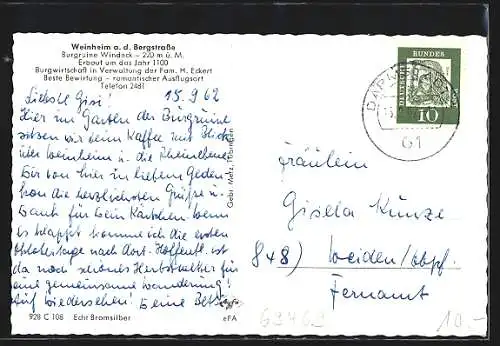 Weinheim a. d. Bergstraße
Burgruine Windeck – 220 m ü. M.
Erbaut um das Jahr 1100
Burgwirtschaft in Verwaltung der Fam. H. Eckert
Beste Bewirtung – romantischer Ausflugsort
Telefon 2481
Liebste Gisi! 15.9.62
Hier im Garten der Burgruine
sitzen wir beim Kaffee mit Blick
über Weinheim u. die Rheinebene.
Dir von hier in liebem Geden-
ken die herzlichsten Grüße u.
Dank für Dein Kärtchen. Wenn
es klappt komme ich die ersten
Oktobertage nach dort. Hoffentl. ist
da noch schönes Herbstwetter für
eine gemeinsame Wanderung!
Auf Wiedersehen! Deine
928 C 108 Echt Bromsilber
eFA
Gebr. Metz, Tübingen
DEUTSCHE BUNDESPOST
10
61
Fräulein
Gisela Kunze
848) Weiden/Obpf.
Fernamt
69469
10.-